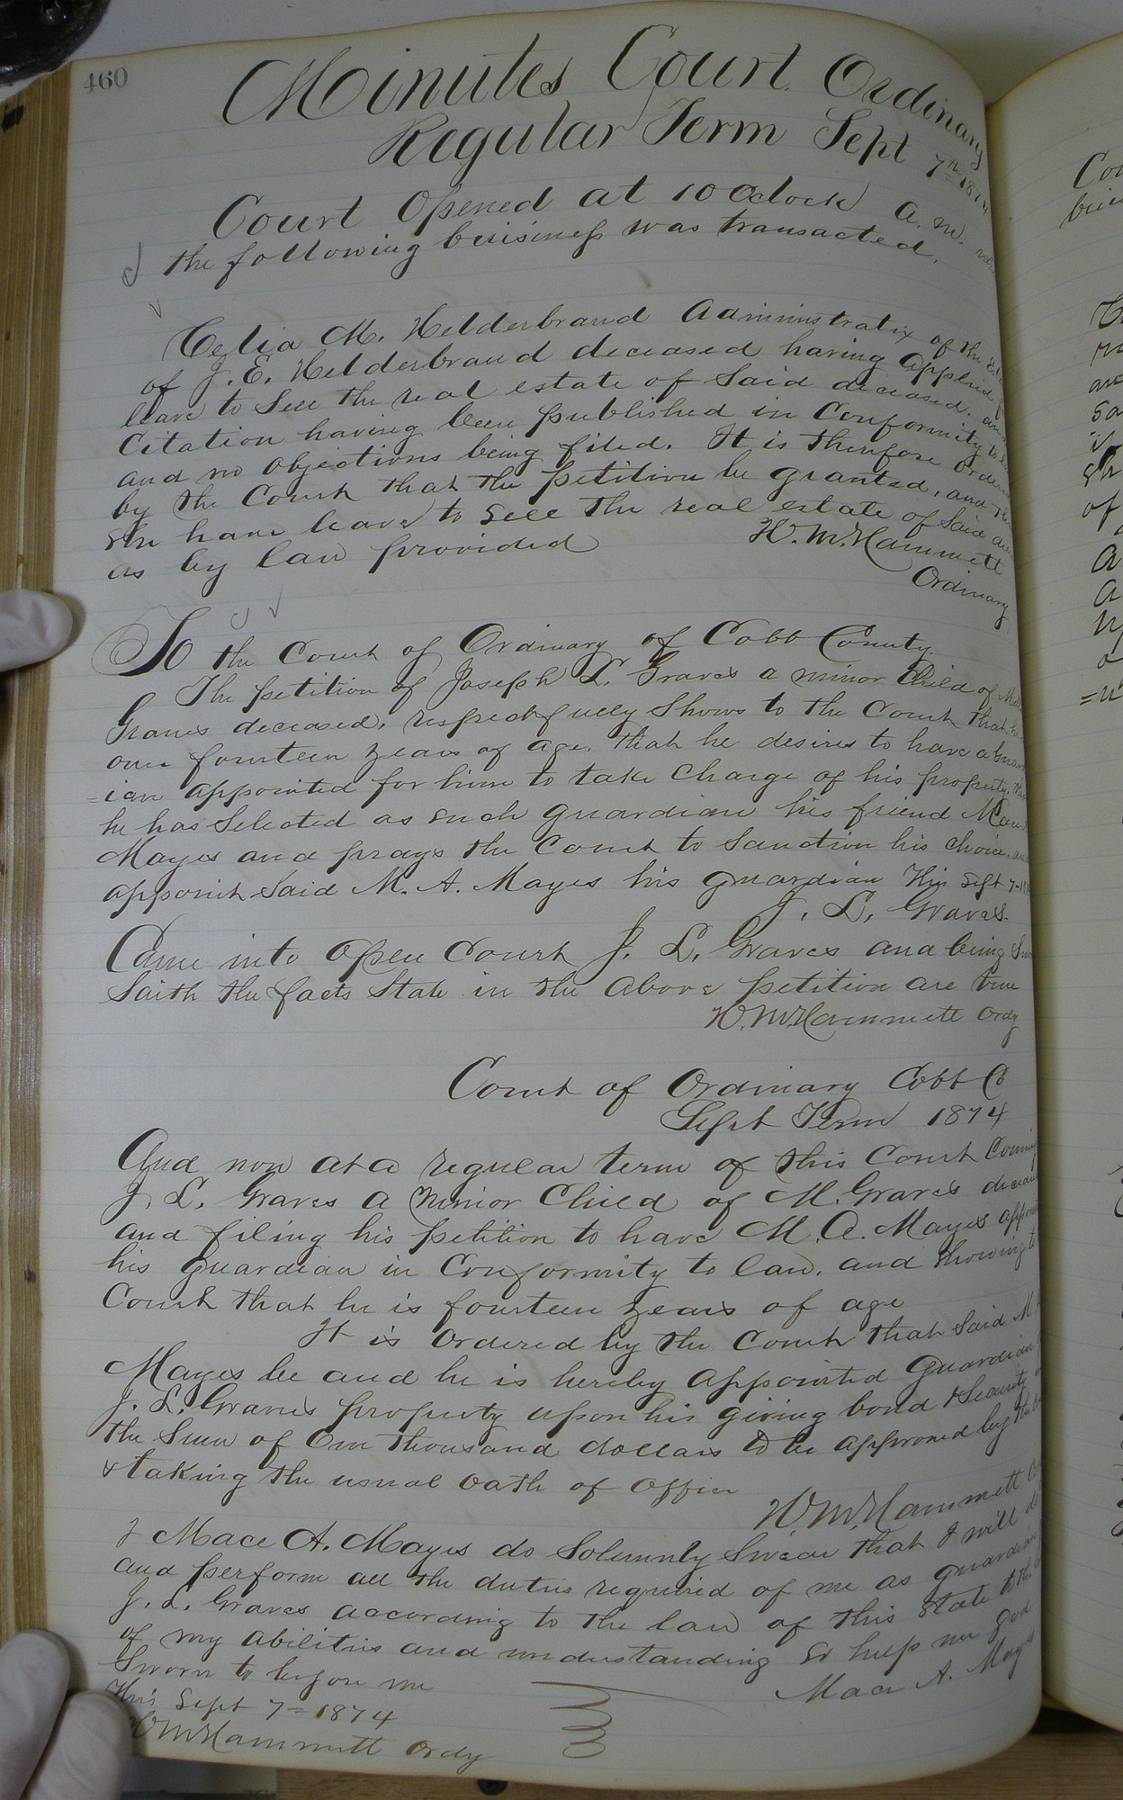 460
Minutes Court Ordinary
Regular Term Sept 7th 1874
Court Opened at 10 Oclock A. M.
the following buisiness was transacted.
Celia M. Hilderbrand Administratix of the
of J. E. Hilderbrand deceased having applied
leave to Sell the real estate of Said deceased. and
Citation having been published in Conformity to
and no objections being filed. It is therefore ordered
by the Court that the petition be granted, and
she have leave to Sell the real estate of Said
as by law provided
W. M. Hammett
Ordinary
To the Court of Ordinary of Cobb County
The petition of Joseph L. Graves a minor Child of
Graves deceased, respectfully Shows to the Court that
over fourteen years of age, that he desires to have a
=ian appointed for him to take Charge of his property,
he has Selected as such guardian his friend
Mayes and prays the Court to Sanction his choice,
appoint Said M. A. Mayes his guardian This Sept 7
J. L. Graves
Came into open Court J. L. Graves and being
Saith the facts State in the above petition are true
W. M. Hammett Ordy
Court of Ordinary Cobb Co
Sept Term 1874
And now at a regular term of this Court Coming
J. L. Graves a Minor Child of M. Graves
and filing his petition to have M. A. Mayes
his guardian in Conformity to law, and Showing to
Court that he is fourteen years of age
It is ordered by the Court that Said M
Mayes be and he is hereby appointed Guardian
J. L. Graves property upon his giving bond & Security
the Sum of One thousand dollars to be approved by the
& taking the usual oath of Office
W. M. Hammett
I Mace A. Mayes do Solemnly Swear that I will
and perform all the duties required of me as guardian
J. L. Graves according to the law of this State to the
of my abilities and understanding So help me God
Sworn to before me
Mace A. Mayes
this Sept 7= 1874
W M Hammett Ordy